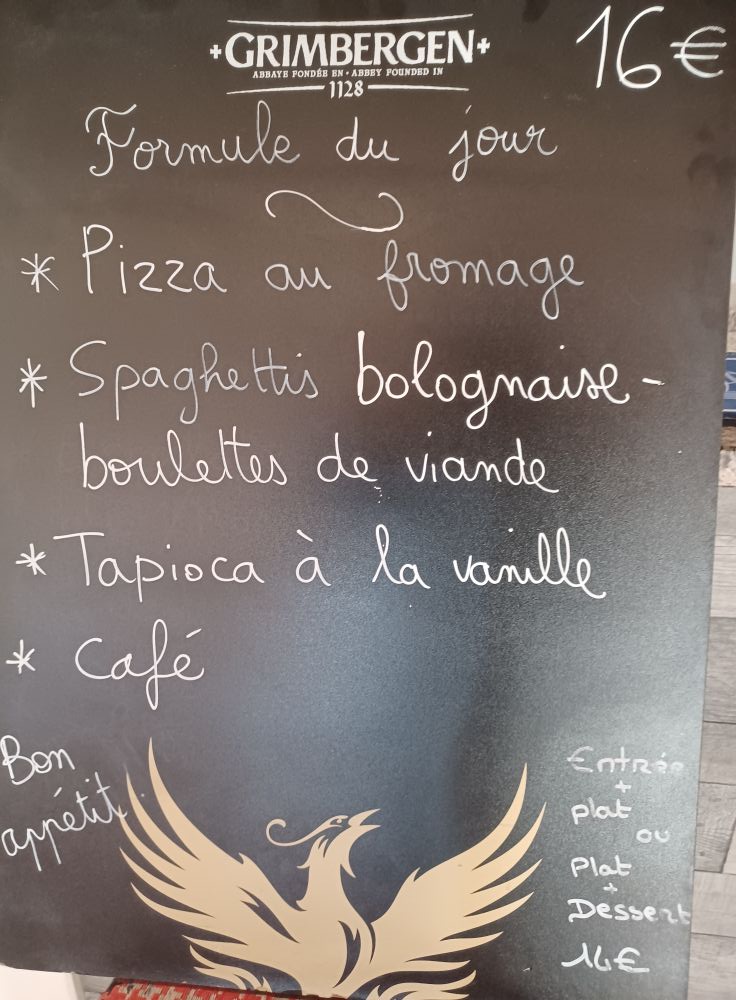 +GRIMBERGEN+
ABBAYE FONDÉE EN • ABBEY FOUNDED IN
1128
16€
Formule du jour
* Pizza au fromage
* Spaghettis bolognaise-
boulettes de viande
* Tapioca à la vanille
* Café
Bon
appétit.
Entrée
+
plat
ou
Plat
+
Dessert
14€